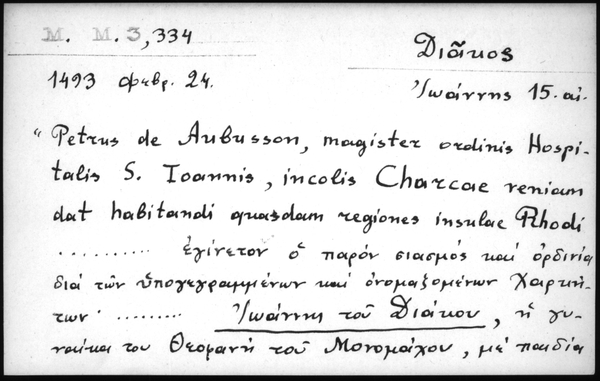 M. M. 3,334
Διᾶκος
1493 φεβρ. 24.
Ἰωάννης 15. αἰ.
"Petrus de Aubusson, magister ordinis Hospi-
talis S. Ioannis, incolis Charcae veniam
dat habitandi quasdam regiones insulae Rhodi
.......... ἐγίνετον ὁ παρόν σιασμός καί ὀρδινία
διά τῶν ὑπογεγραμμένων καί ὀνομαζομένων Χαρκή-
των· ......... Ἰωάννης τοῦ Διάκου, ἡ γυ-
ναίκα του Θεοφανή τοῦ Μονομάχου, μέ παιδία